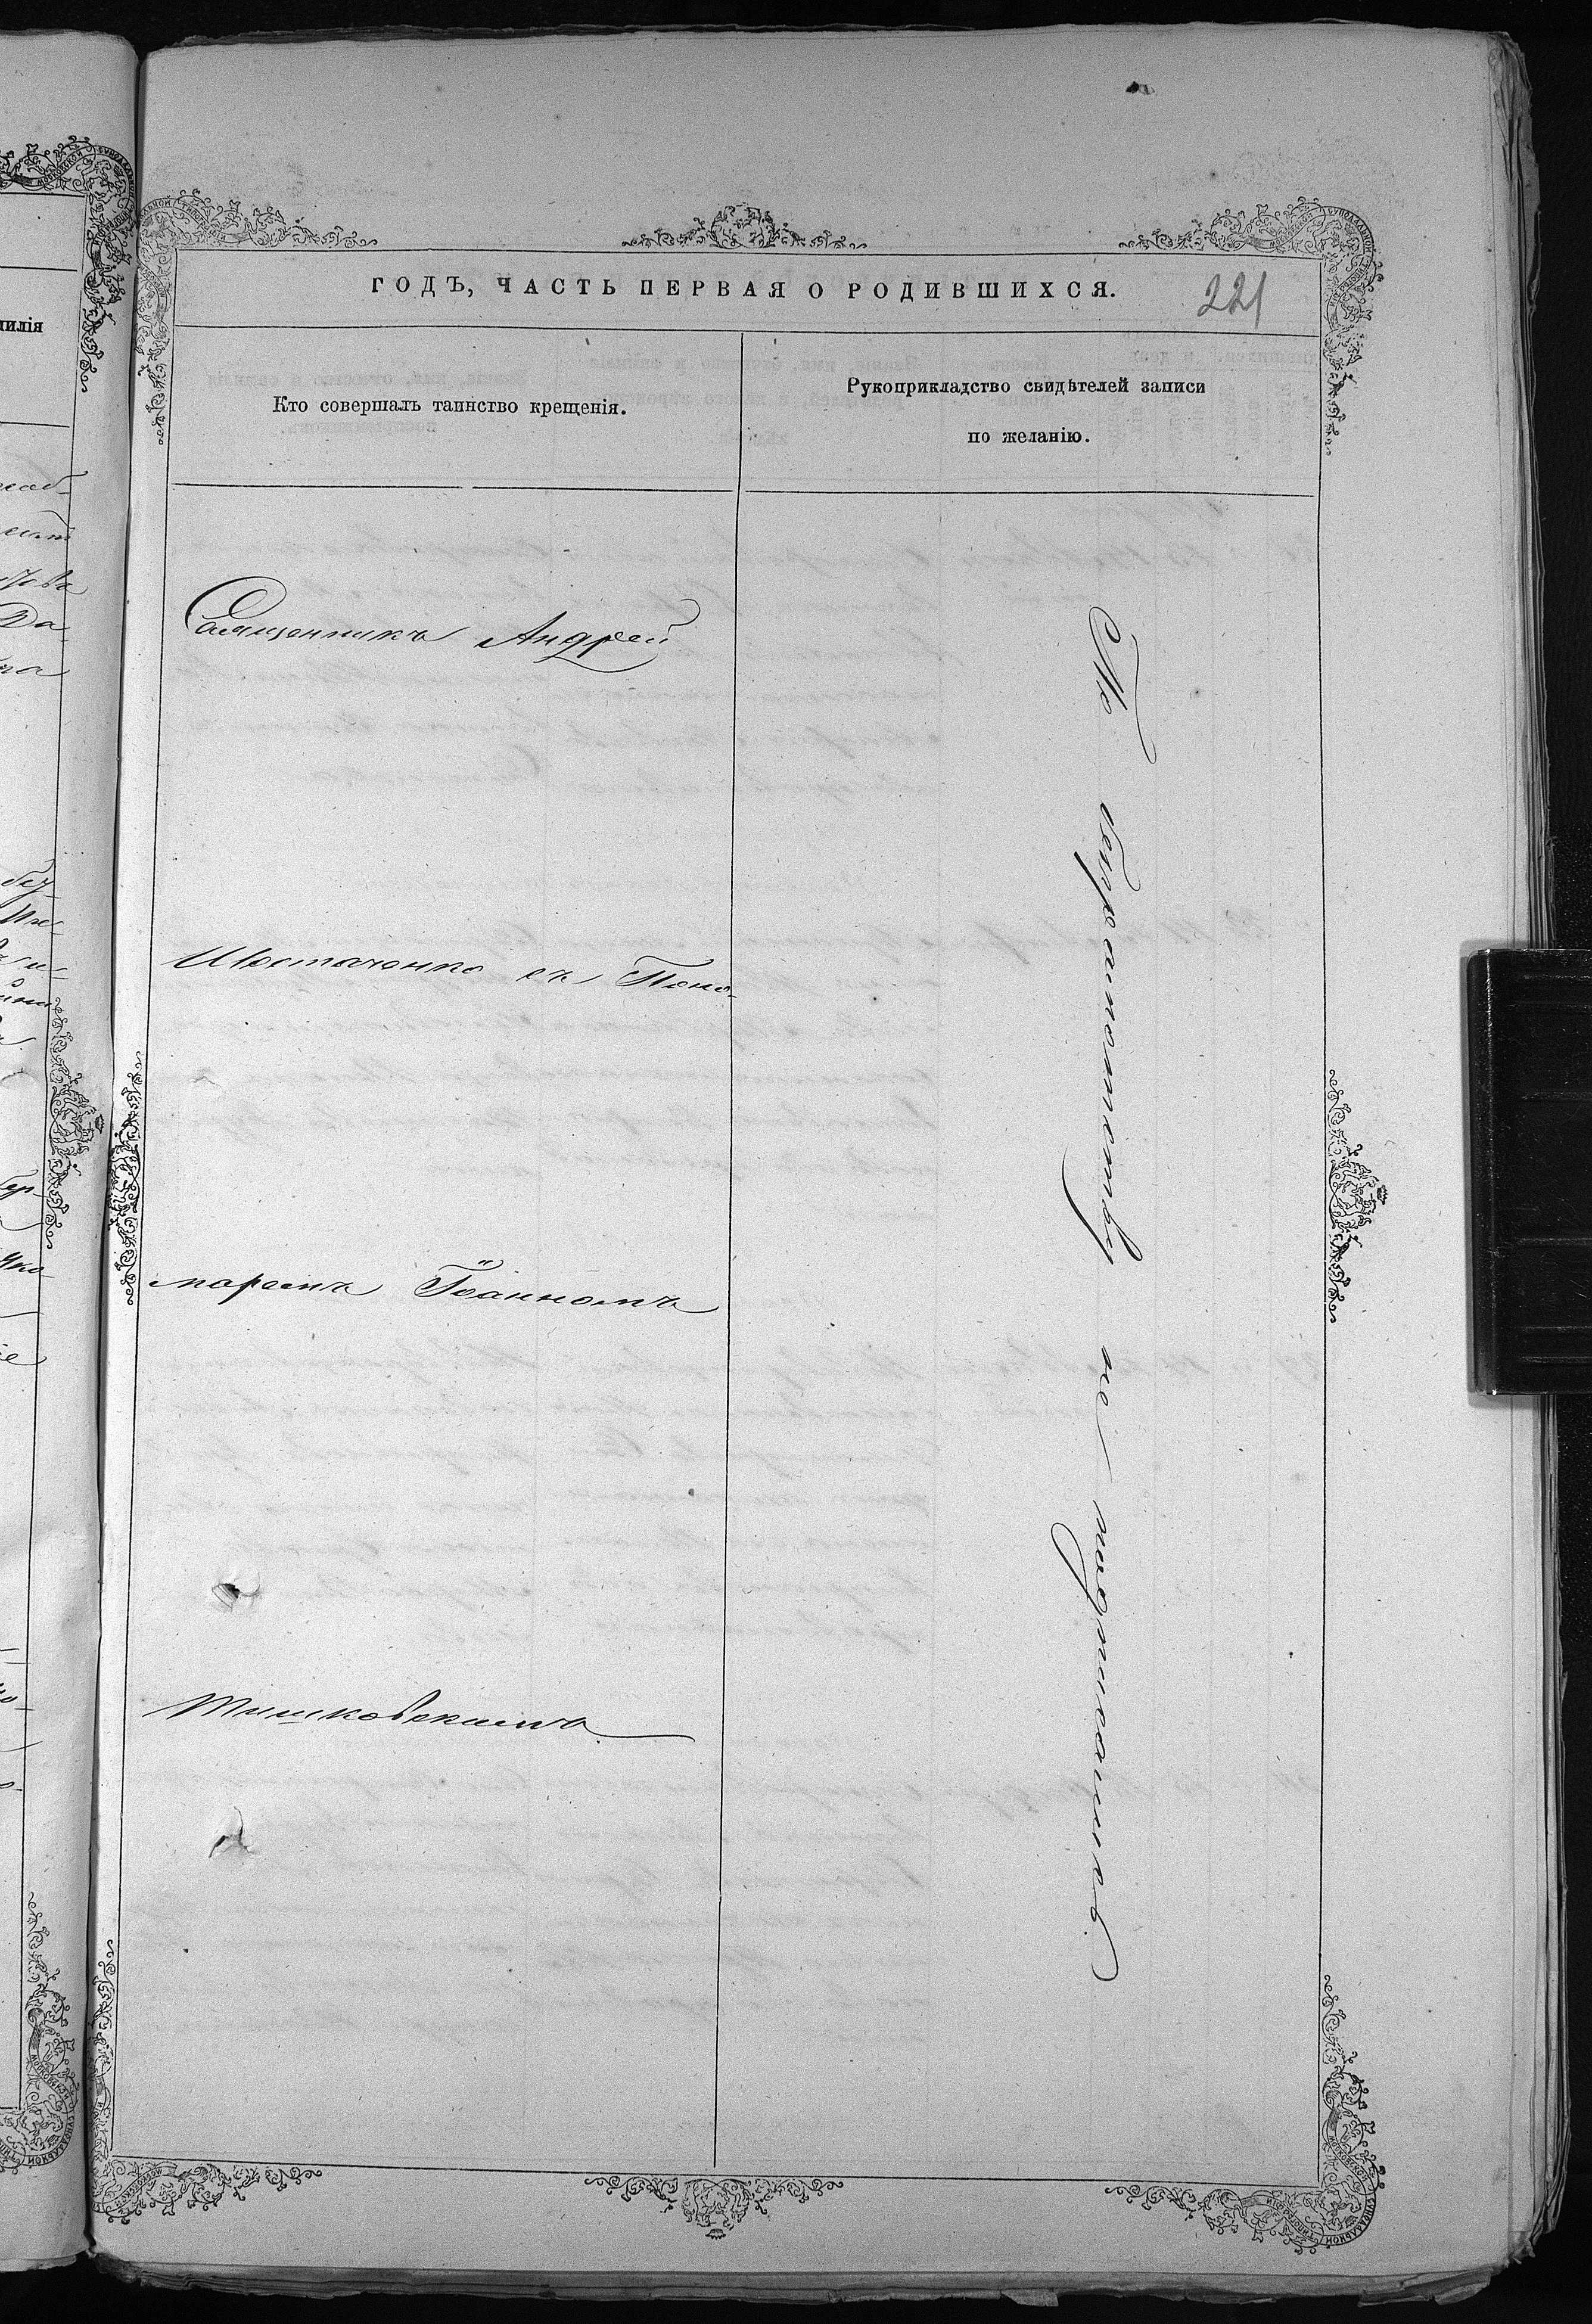 ГОДЪ, ЧАСТЬ ПЕРВАЯ О РОДИВШИХСЯ.
221
Кто совершалъ таинство крещенія.
Рукоприкладство свидѣтелей записи
по желанію.
Священникъ Андрей
Шостаченко съ Поно-
маремъ Іоанномъ
Тишковскимъ
По неграмотству не подписались